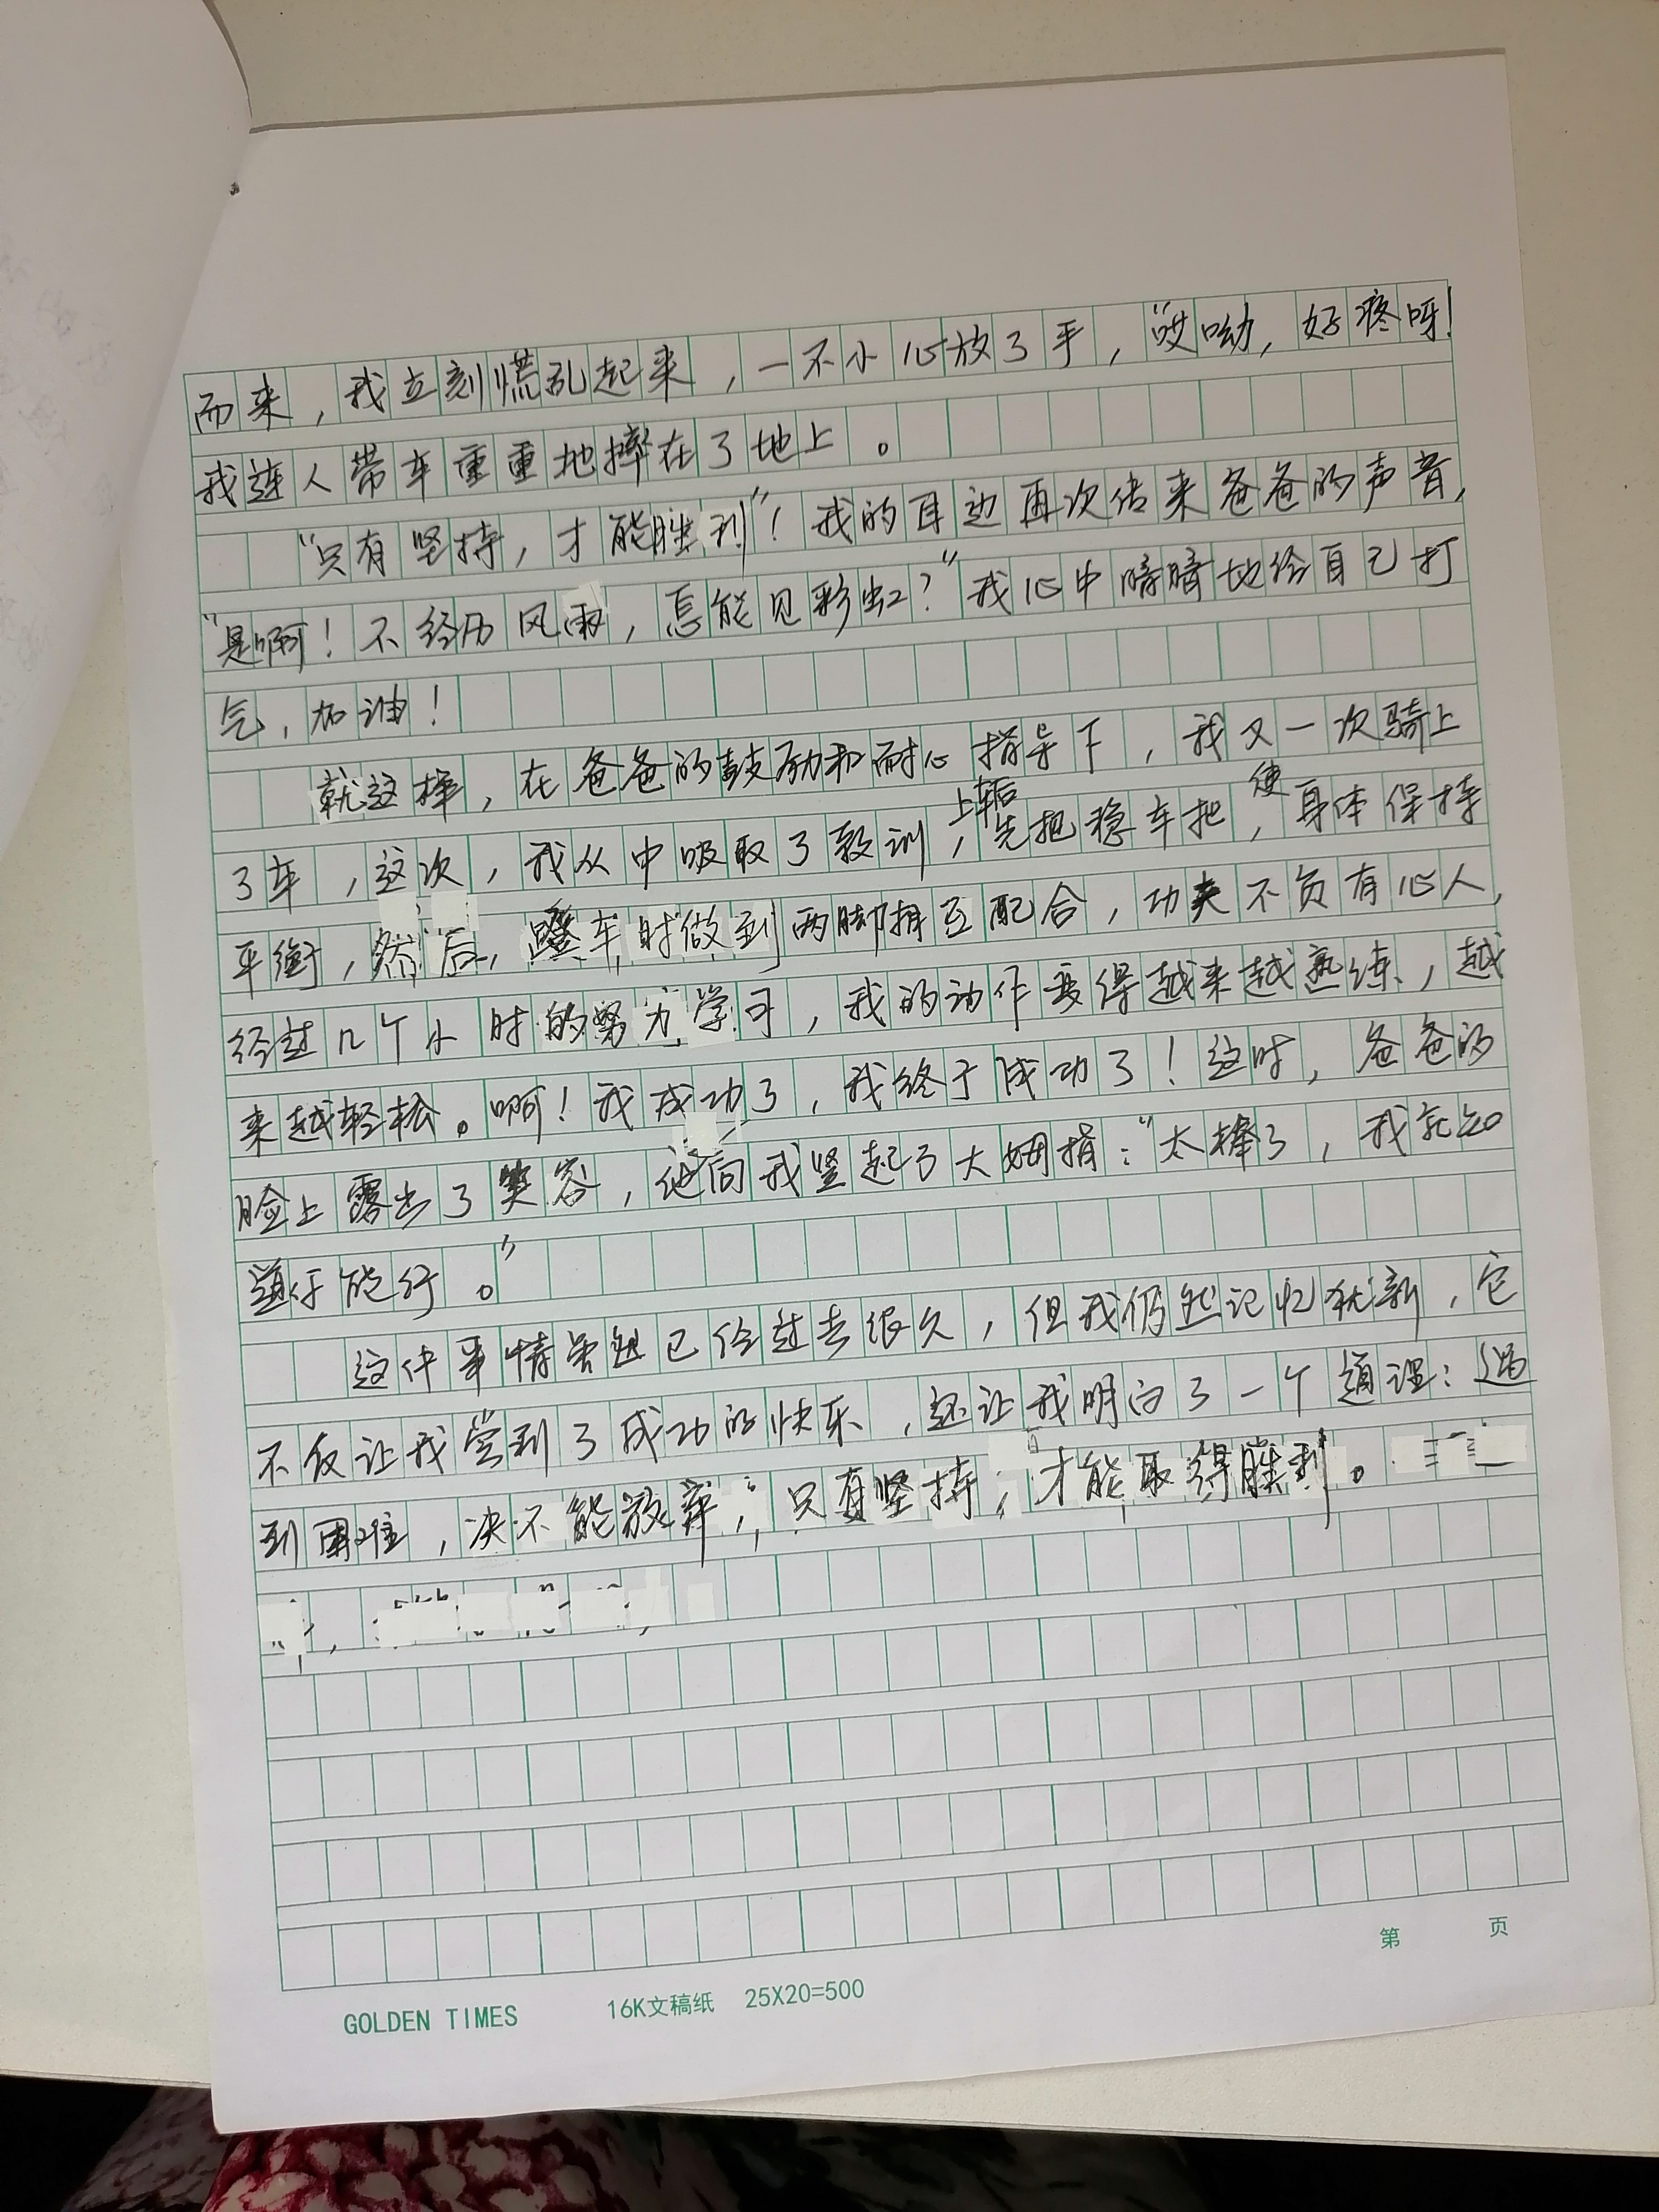 而来，我立刻慌乱起来，一不小心放了手，“哎呦，好疼呀！
我连人带车重重地摔在了地上。
“只有坚持，才能胜利”！我的耳边再次传来爸爸的声音，
“是啊！不经历风雨，怎能见彩虹？”我心中暗暗地给自己打
气，加油！
就这样，在爸爸的鼓励和耐心指导下，我又一次骑上
了车，这次，我从中吸取了教训，上车后先把稳车把，使身体保持
平衡，然后，蹬车时做到两脚相互配合，功夫不负有心人，
经过几个小时的努力学习，我的动作变得越来越熟练，越
来越轻松。啊！我成功了，我终于成功了！这时，爸爸的
脸上露出了笑容，他向我竖起了大姆指：“太棒了，我就知
道你能行。”
这件事情虽然已经过去很久，但我仍然记忆犹新，它
不仅让我尝到了成功的快乐，还让我明白了一个道理：遇
到困难，决不能放弃，只有坚持，才能取得胜利。
第 页
GOLDEN TIMES 16K文稿纸 25X20=500